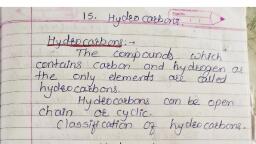 15. Hydrocarbons
Hydrocarbons:-
The compounds which
contains carbon and hydrogen as
the only elements are called
hydrocarbons.
Hydrocarbons can be open
chain or cyclic.
Classification of hydrocarbons.